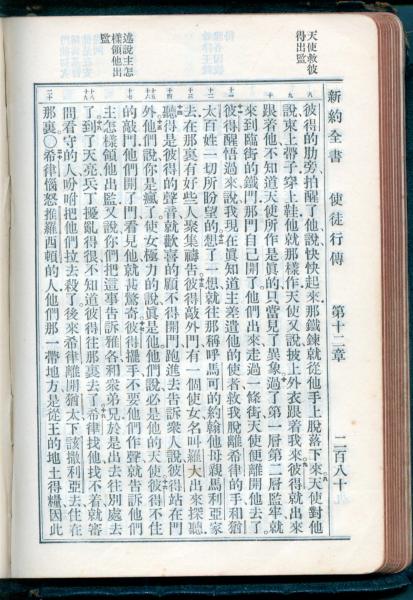 新約全書 使徒行傳 第十二章 二百八十
天使救彼
得出監
述說主怎
樣領他出
監
彼得的肋旁拍醒了他說快快起來那鐵鍊就從他手上脫落下來天使對他
說束上帶子穿上鞋他就那樣作天使又說披上外衣跟着我來彼得就出來
跟着他不知道天使所作是真的只當見了異象過了第一層第二層監牢就
來到臨街的鐵門那門自己開了他們出來走過一條街天使便離開他去了
彼得醒悟過來說我現在真知道主差遣他的使者救我脫離希律的手和猶
太百姓一切所盼望的想了一想就往那稱呼馬可的約翰他母親馬利亞家
去在那裏有好些人聚集禱告彼得敲外門有一個使女名叫羅大出來探聽
聽得是彼得的聲音就歡喜的顧不得開門跑進去告訴衆人說彼得站在門
外他們說你是瘋了使女極力的說真是他他們說必是他的天使彼得不住
的敲門他們開了門看見他就甚驚奇彼得擺手不要他們作聲就告訴他們
主怎樣領他出監又說你們把這事告訴雅各和衆弟兄於是出去往別處去
了到了天亮兵丁擾亂得很不知道彼得往那裏去了希律找他找不着就審
問看守的人吩咐把他們拉去殺了後來希律離開猶太下該撒利亞去住在
那裏〇希律惱怒推羅西頓的人他們那一帶地方是從王的地土得糧因此